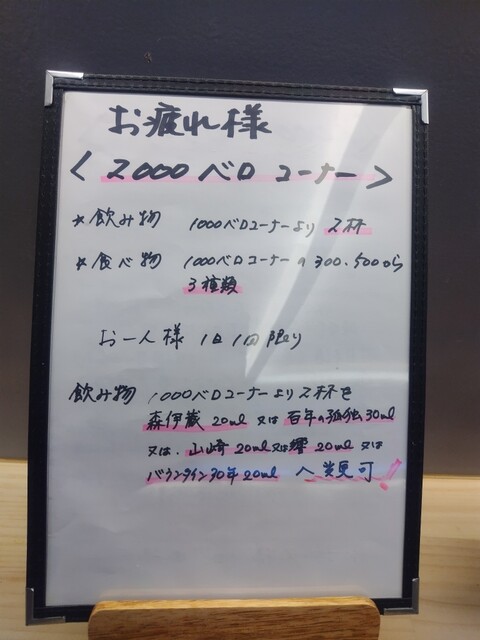 お疲れ様
<2000ベロコーナー>
*飲み物 1000ベロコーナーより 2杯
*食べ物 1000ベロコーナーの300.500から
3種類
お一人様 1日1回限り
飲み物 1000ベロコーナーより2杯を
森伊蔵20ml 又は 百年の孤独30ml
又は.山崎20ml又は響20ml 又は
バランタイン30年20ml へ変更可!